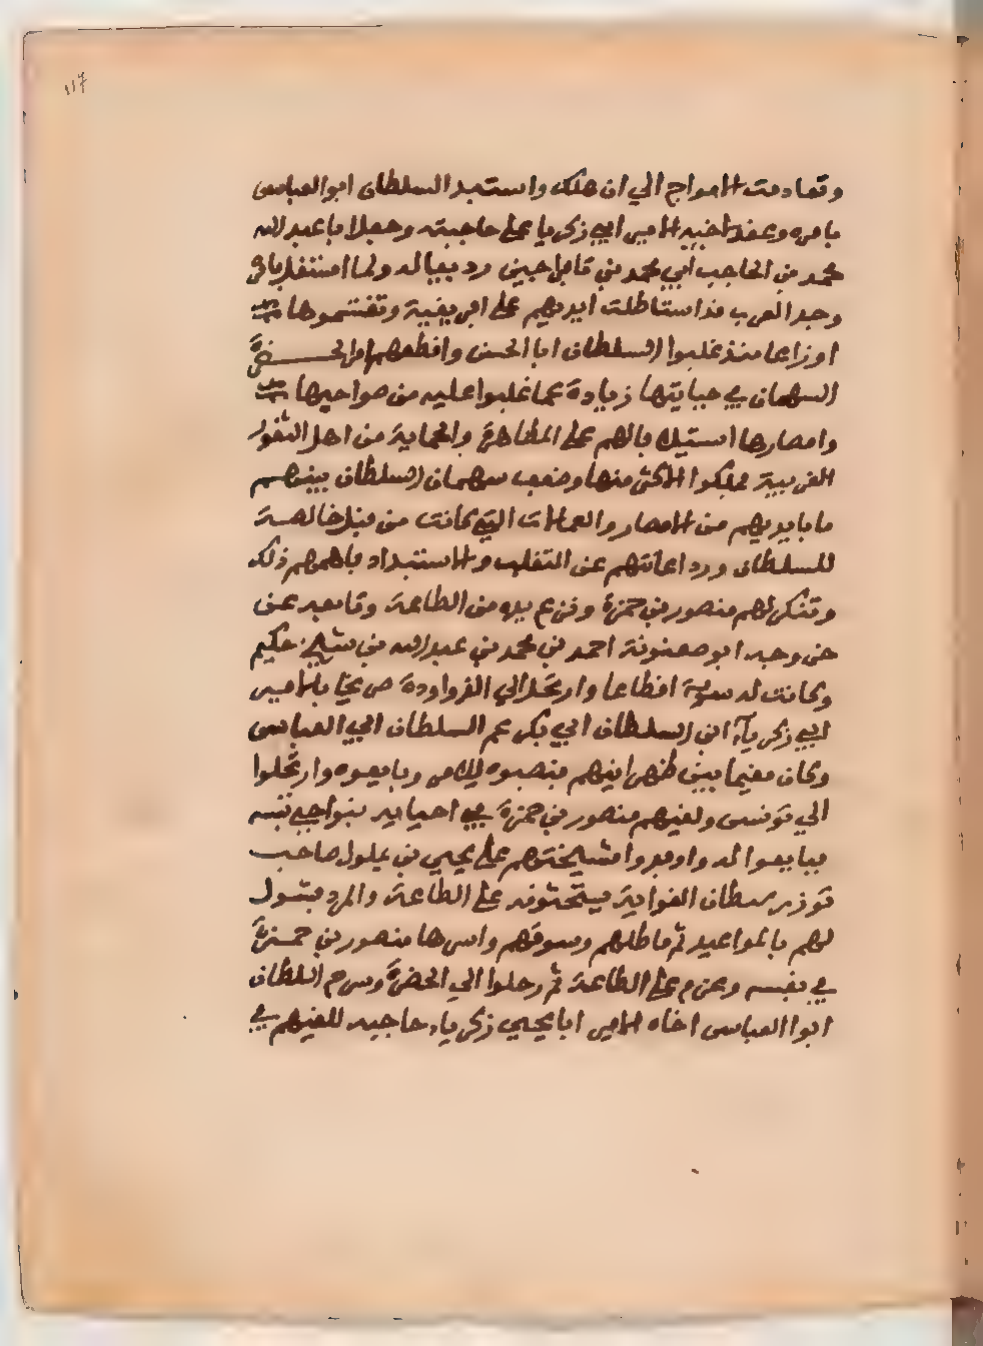 117
وتقاذفت الامواج الي ان هلك واستبد السلطان ابو العباس
بامره وعقد لاخيه الامير ابي زكريا على حاجبته وجعل ابا عبد الله
محمد بن الحاجب ابي محمد بن تافراجين رديفا له ولما استقل بامره
وجد العرب قد استطالت ايديهم على افريقية وتقسموها
اوزاعا منذ غلبوا السلطان ابا الحسن واقطعهم
السهمان في جبايتها زيادة عما غلبوا عليه من ضواحيها
وامصارها استيلافا لهم على المظاهرة والحماية من اهل الثغور
الغربية فملكوا الاكثر منها وضعف سهمان السلطان بينهم
ما بايديهم من الامصار والعمالات التي كانت من قبل خالصة
للسلطان ورد اعنتهم عن التغلب والاستبداد فاهمهم ذلك
وتنكر لهم منصور بن حمزة ونزع يده من الطاعة وتابعه عن
خروجه ابو صعنونة احمد بن محمد بن عبد الله بن حكيم
وكانت له اقطاعا وارتحل الي الذواودة صريخا بالامير
ابي زكرياء ابن السلطان ابي بكر عم السلطان ابي العباس
وكان مقيما بين ظهرانيهم فنصبوه للامر وبايعوه وارتحلوا
الي تونس ولقيهم منصور بن حمزة في احيايه بنواحي تبسة
فبايعوا له واوفدوا مشيختهم على يحيى بن يملول صاحب
توزر يستحثونه على الطاعة والمدد فتسول
لهم بالمواعيد ثم ماطلهم وسوفهم واسرها منصور بن حمزة
في نفسه وعزم على الطاعة ثم رحلوا الي الحضرة وسرح السلطان
ابوا العباس اخاه الامير ابا يحيى زكرياء حاجبه للقيهم في